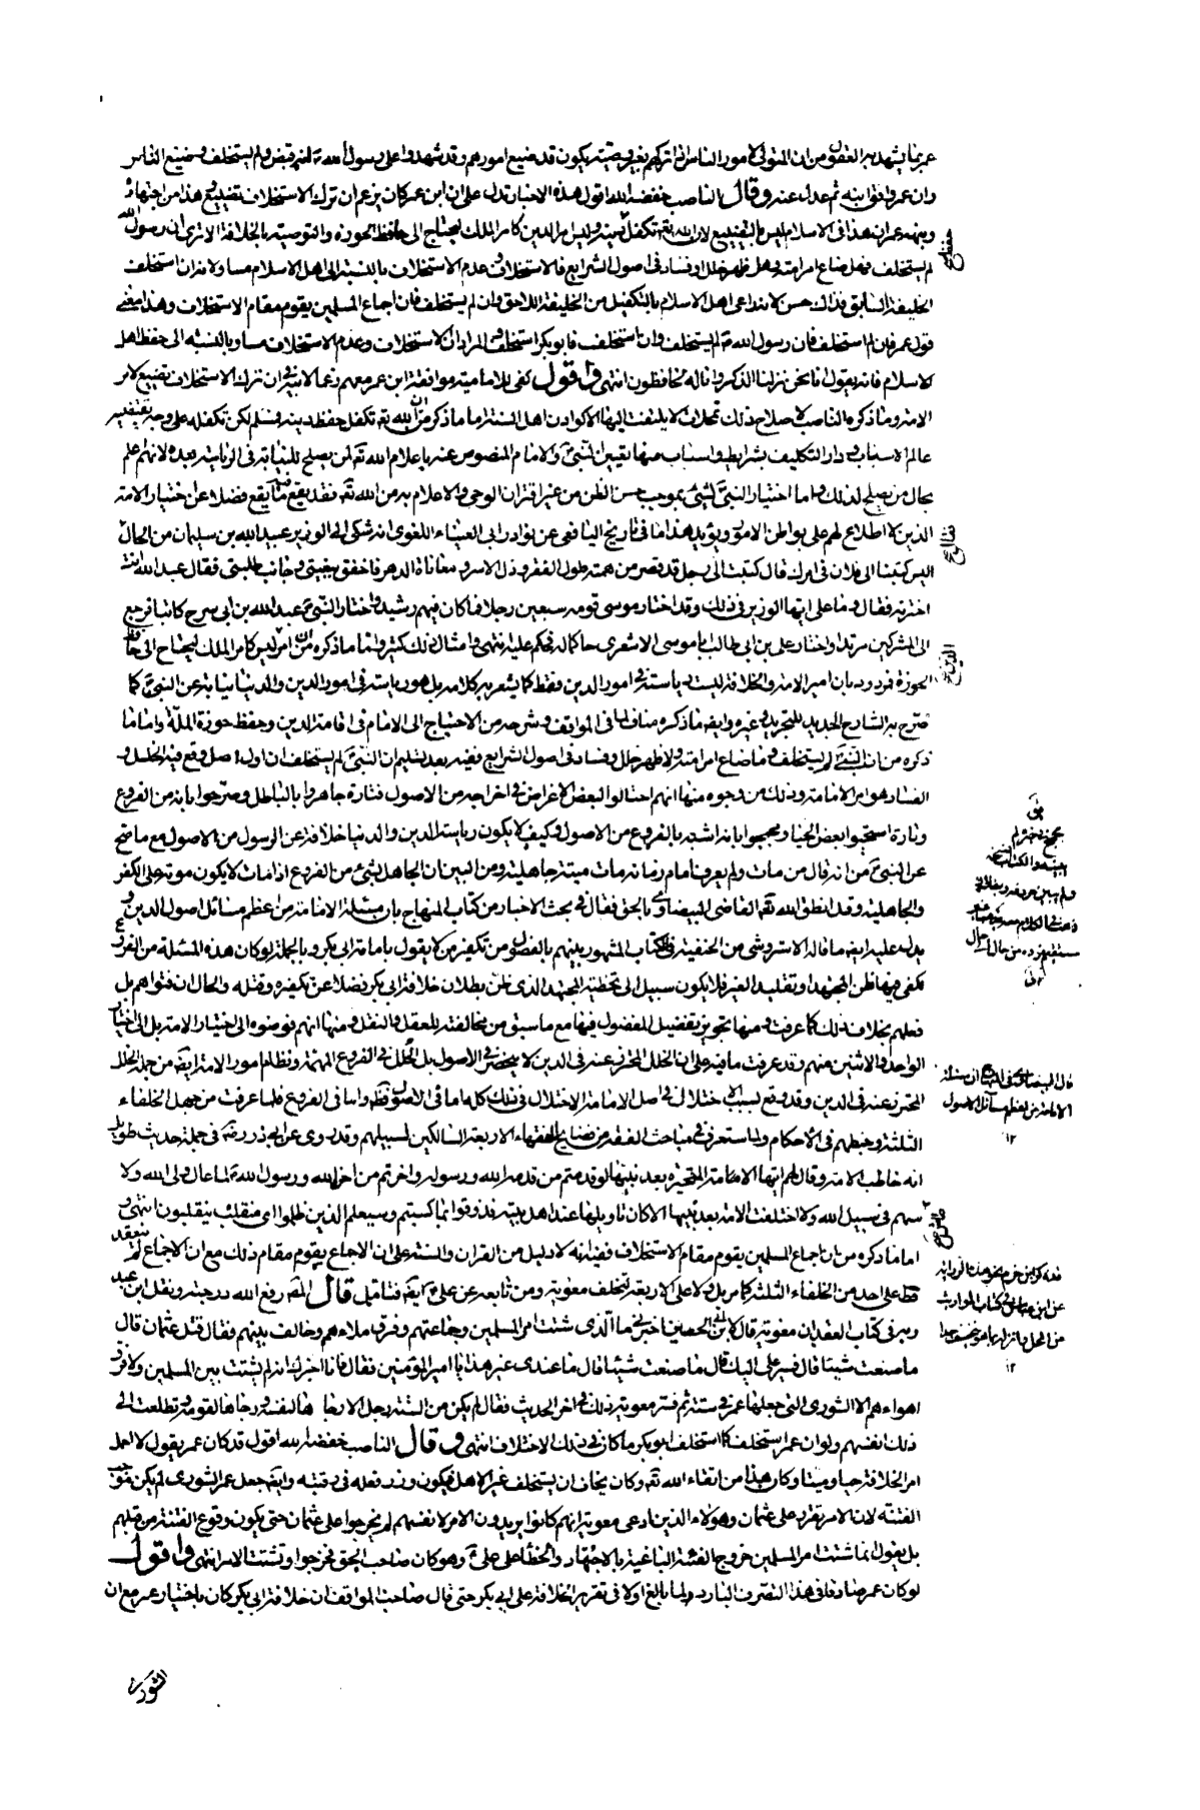 عمر بما يشهد به العقول من ان المتولي لامور الناس اذا تركهم بغير وصية يكون قد ضيع امورهم وقد شهدوا على رسول الله ص انه قبض ولم يستخلف وضيع الناس
وان عمر وافق ابنه ثم عدل عنه وقال الناصب خفضه الله اقول هذه الاخبار تدل على ان ابن عمر كان يزعم ان ترك الاستخلاف تضييع وهذا من اجتهاده
وبنه عمر ان هذا في الاسلام ليس بالتضييع لان الله تع تكفل بدينه وليس امر الدين كامر الملك يحتاج الى حافظ الحوزة والتوصية بالخلافة الا ترى ان رسول الله
لم يستخلف فهل ضاع امر امته وهل ظهر خلل او فساد في اصول الشرايع فالاستخلاف وعدم الاستخلاف بالنسبة الى اهل الاسلام مساو لانه ان استخلف
الخليفة السابق فذاك حسن لابتداء اهل الاسلام بالتكفيل من الخليفة اللاحق وان لم يستخلف فان اجماع المسلمين يقوم مقام الاستخلاف وهذا معنى
قول عمر فان لم استخلف فان رسول الله ص لم يستخلف وان استخلفت فابو بكر استخلف والمراد ان الاستخلاف وعدم الاستخلاف مساو بالنسبة الى حفظ اهل
الاسلام فانه يقول انا نحن نزلنا الذكر وانا له لحافظون انتهى واقول كفى للامامية موافقة ابن عمر معهم زعما لابيه في ان ترك الاستخلاف تضييع لامر
الامة وما ذكره الناصب لاصلاح ذلك تمحلات لا يلتفت اليها الا كوادن اهل السنة اما ما ذكر من ان الله تع تكفل حفظ دينه فمسلم لكن تكفله على وجه يقتضيه
عالم الاسباب ودار التكليف بشرايط واسباب منها تعيين النبي ص والامام المنصوص عنه باعلام الله تع لمن يصلح للنيابة في الرياسة بعده لانهم اعلم
بحال من يصلح لذلك واما اختيار النبي ص لشيء بموجب حسن الظن من غير اقتران الوحي والاعلام به من الله تع فقد يقع منه ما يقع فضلا عن اختيار الامة
الذين لا اطلاع لهم على بواطن الامور ويؤيد هذا ما في تاريخ اليافعي عن نوادر ابي العيناء اللغوي انه شكى الى الوزير عبيد الله بن سليمان من الحال
اليس كتبنا الى فلان في امرك قال كتبت الى رجل قد قصر من همته طول الفقر وذل الاسر ومعاناة الدهر فاخفق سعيي وخاب طلبتي فقال عبد الله انت
اخترته فقال وما علي ايها الوزير في ذلك وقد اختار موسى قومه سبعين رجلا فما كان فيهم رشيد واختار النبي ص عبد الله بن ابي سرح كاتبا فرجع
الى المشركين مرتدا واختار علي بن ابي طالب ابا موسى الاشعري حاكما له فحكم عليه انتهى وامثال ذلك كثير واما ما ذكره من ان امر الدين ليس كامر الملك ليحتاج الى حافظ
الحوزة فمردود بان امير الامة والخلافة ليست رياسته في امور الدين فقط كما يشعر به كلامه بل هو رياسة في امور الدين والدنيا نيابة عن النبي ص كما
صرح به الشارح الجديد للتجريد وغيره وايضا ما ذكره مناف لما في المواقف وشرحه من الاحتياج الى الامام في اقامة الدين وحفظ حوزة الملة واما ما
ذكره من ان النبي ص لم يستخلف وما ضاع امر امته ولا ظهر خلل وفساد في اصول الشرايع ففيه بعد تسليم ان النبي ص لم يستخلف ان اول اصل وقع فيه الخلل و
الفساد هو امر الامامة وذلك من وجوه منها انهم احتالوا لبعض الاغراض في اخراجه من الاصول فتارة جاهروا بالباطل وصرحوا بانه من الفروع
وتارة استحيوا بعض الحيا ومجمجوا بانه اشبه بالفروع من الاصول وكيف لا يكون رياسة الدين والدنيا خلافة عن الرسول من الاصول مع ما صح
عن النبي ص من انه قال من مات ولم يعرف امام زمانه مات ميتة جاهلية ومن البين ان الجاهل بشيء من الفروع اذا مات لا يكون موته على الكفر
والجاهلية وقد انطق الله تع القاضي البيضاوي بالحق فقال في بحث الاخبار من كتاب المنهاج بان مسئلة الامامة من اعظم مسائل اصول الدين و
يدل عليه ايضا ما قاله الاستروشي من الحنفية في الكتاب المشهور بينهم بالفصول من تكفير من لا يقول بامامة ابي بكر وبالجملة لو كان هذه المسئلة من الفروع
تكفى فيها ظن المجتهد او تقليد الغير فلا يكون سبيل الى تخطئة المجتهد الذي ظن بطلان خلافة ابي بكر فضلا عن تكفيره وقتله والحال ان فتواهم بل
فعلهم بخلاف ذلك كما عرفت ومنها تجويز تفضيل المفضول فيها مع ما سبق من مخالفته للعقل والنقل ومنها انهم فوضوه الى اختيار الامة بل الى اختيار
الواحد والاثنين منهم وقد عرفت ما فيه على ان الخلل المحترز عنه في الدين لا ينحصر في الاصول بل الخلل في الفروع المهمة ونظام امور الامة ايضا من جملة الخلل
المحترز عنه في الدين وقد وقع بسبب الاختلال في اصل الامامة الاختلال في ذلك كله اما في الاصول فظ واما في الفروع فلما عرفت من جهل الخلفاء
الثلثة وخبطهم في الاحكام ولما ستعرف في مباحث الفقه من فضايح الفقهاء الاربعة السالكين لسبيلهم وقد روى عن ابي ذر رض في جملة حديث طويل
انه خاطب الامة وقال لهم ايتها الامة المتحيرة بعد نبيها لو قدمتم من قدمه الله ورسوله واخرتم من اخره الله ورسول الله لما عال ولي الله ولا
سهم في سبيل الله ولا اختلفت الامة بعد نبيها الا كان تاويلها عند اهل بيته فذوقوا بما كسبتم وسيعلم الذين ظلموا اي منقلب ينقلبون انتهى و
اما ما ذكره من ان اجماع المسلمين يقوم مقام الاستخلاف ففيه انه لا دليل من القران والسنة على ان الاجماع يقوم مقام ذلك مع ان الاجماع لم ينعقد
قط على احد من الخلفاء الثلثة كما مر بل ولا على الاربعة لتخلف معوية ومن تابعه عن علي ع ايضا فتامل قال المص رفع الله درجته ونقل ابن عبد
ربه في كتاب العقد ان معوية قال لابن الحصين اخبرني ما الذي شتت امر المسلمين وجماعتهم وفرق ملاءهم وخالف بينهم فقال قتل عثمان قال
ما صنعت شيئا قال فسير علي اليك قال ما صنعت شيئا قال ما عندي غير هذا يا امير المؤمنين فقال فانا اخبرك انه لم يشتت بين المسلمين ولا فرق
اهواءهم الا الشورى التي جعلها عمر في ستة ثم فسر معوية ذلك في اخر الحديث فقال لم يكن من الستة رجل الا رجاها لنفسه ورجاها لقومه وتطلعت الى
ذلك انفسهم ولو ان عمر استخلف كما استخلف ابو بكر ما كان في ذلك الاختلاف انتهى وقال الناصب خفضه الله اقول قد كان عمر يقول لا احمل
امر الخلافة حيا وميتا وكان هذا من اتقاء الله تع وكان يخاف ان يستخلف غير الاهل فيكون وزر فعله في رقبته وايضا جعل عمر الشورى لم يكن موجب
الفتنة لان الامر تقرر على عثمان وهؤلاء الذين ادعى معوية انهم كانوا يريدون الامر لانفسهم لم يخرجوا على عثمان حتى يكون وقوع الفتنة من قبلهم
بل يقول انما شتت امر المسلمين خروج الفئة الباغية بالاجتهاد والخطأ على علي ع وهو كان صاحب الحق فخرجوا وتشتت الامر انتهى واقول
لو كان عمر صادقا في هذا التصرف البارد لما بالغ اولا في تقرير الخلافة على ابي بكر حتى قال صاحب المواقف ان خلافة ابي بكر كان باختيار عمر مع ان
قال البيضاوي في المنهاج ان مسئلة
الامامة من اعظم مسائل الاصول
١٢
الشورى